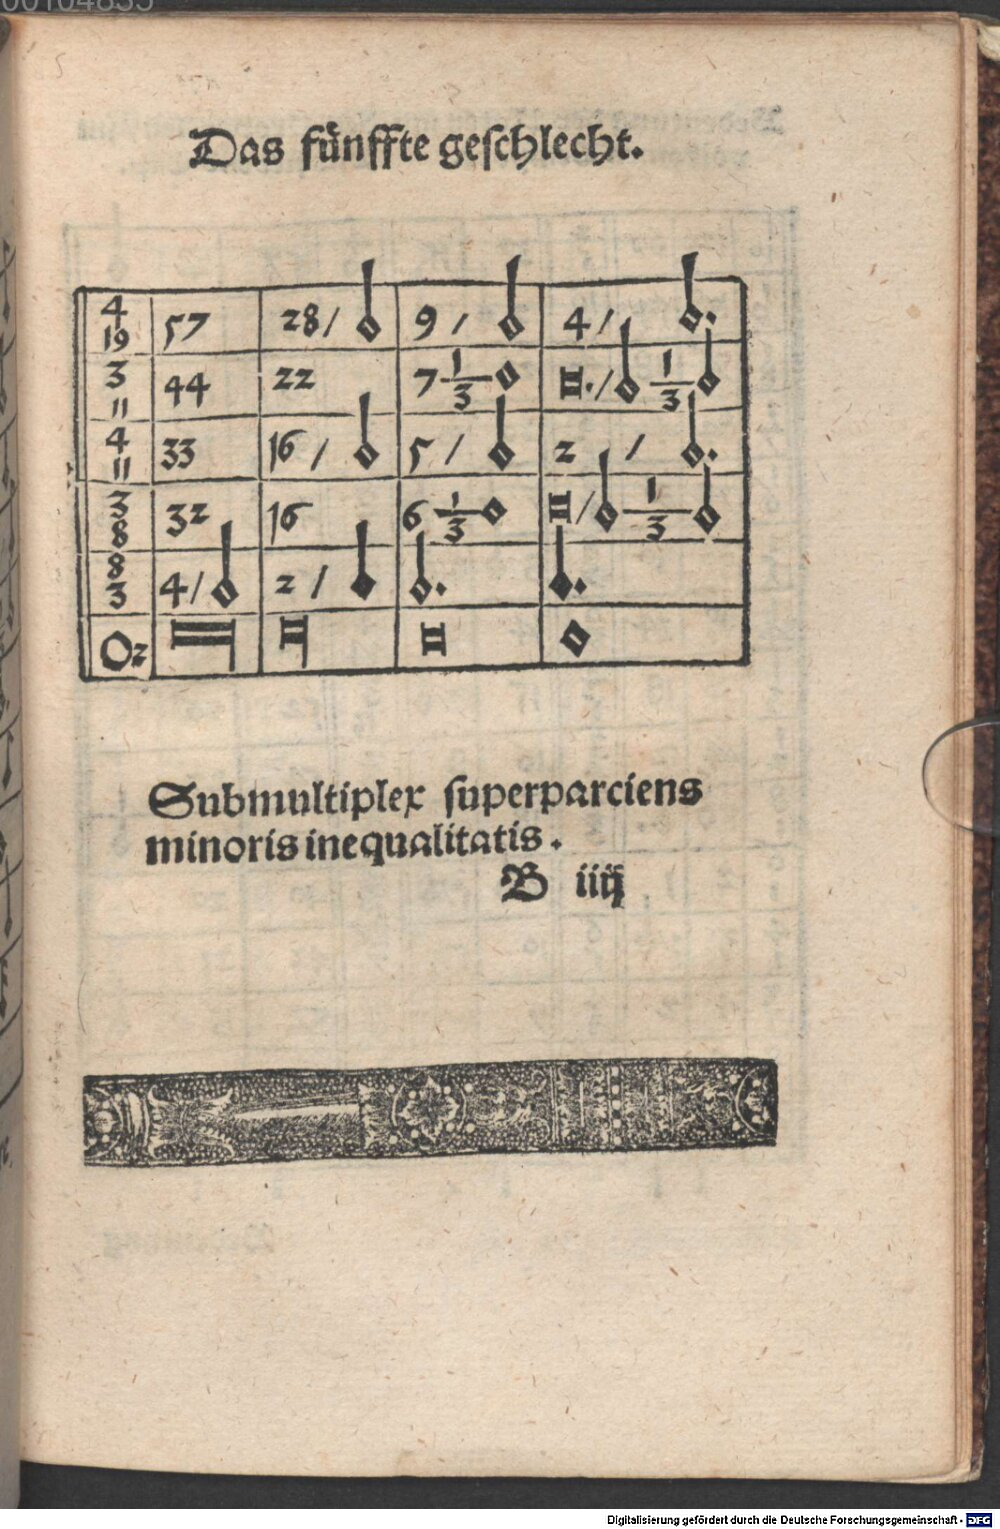 00104835
Das fünffte geschlecht.
4 19 57 28/ 9 / 4 /
3 11 44 22 7 1/3 / 1/3
4 11 33 16 / 5 / 2 /
3 8 32 16 6 1/3 / 1/3
8 3 4/ 2 /
O2
Submultiplex superparciens
minoris inequalitatis.
B iiij
Digitalisierung gefördert durch die Deutsche Forschungsgemeinschaft - DFG